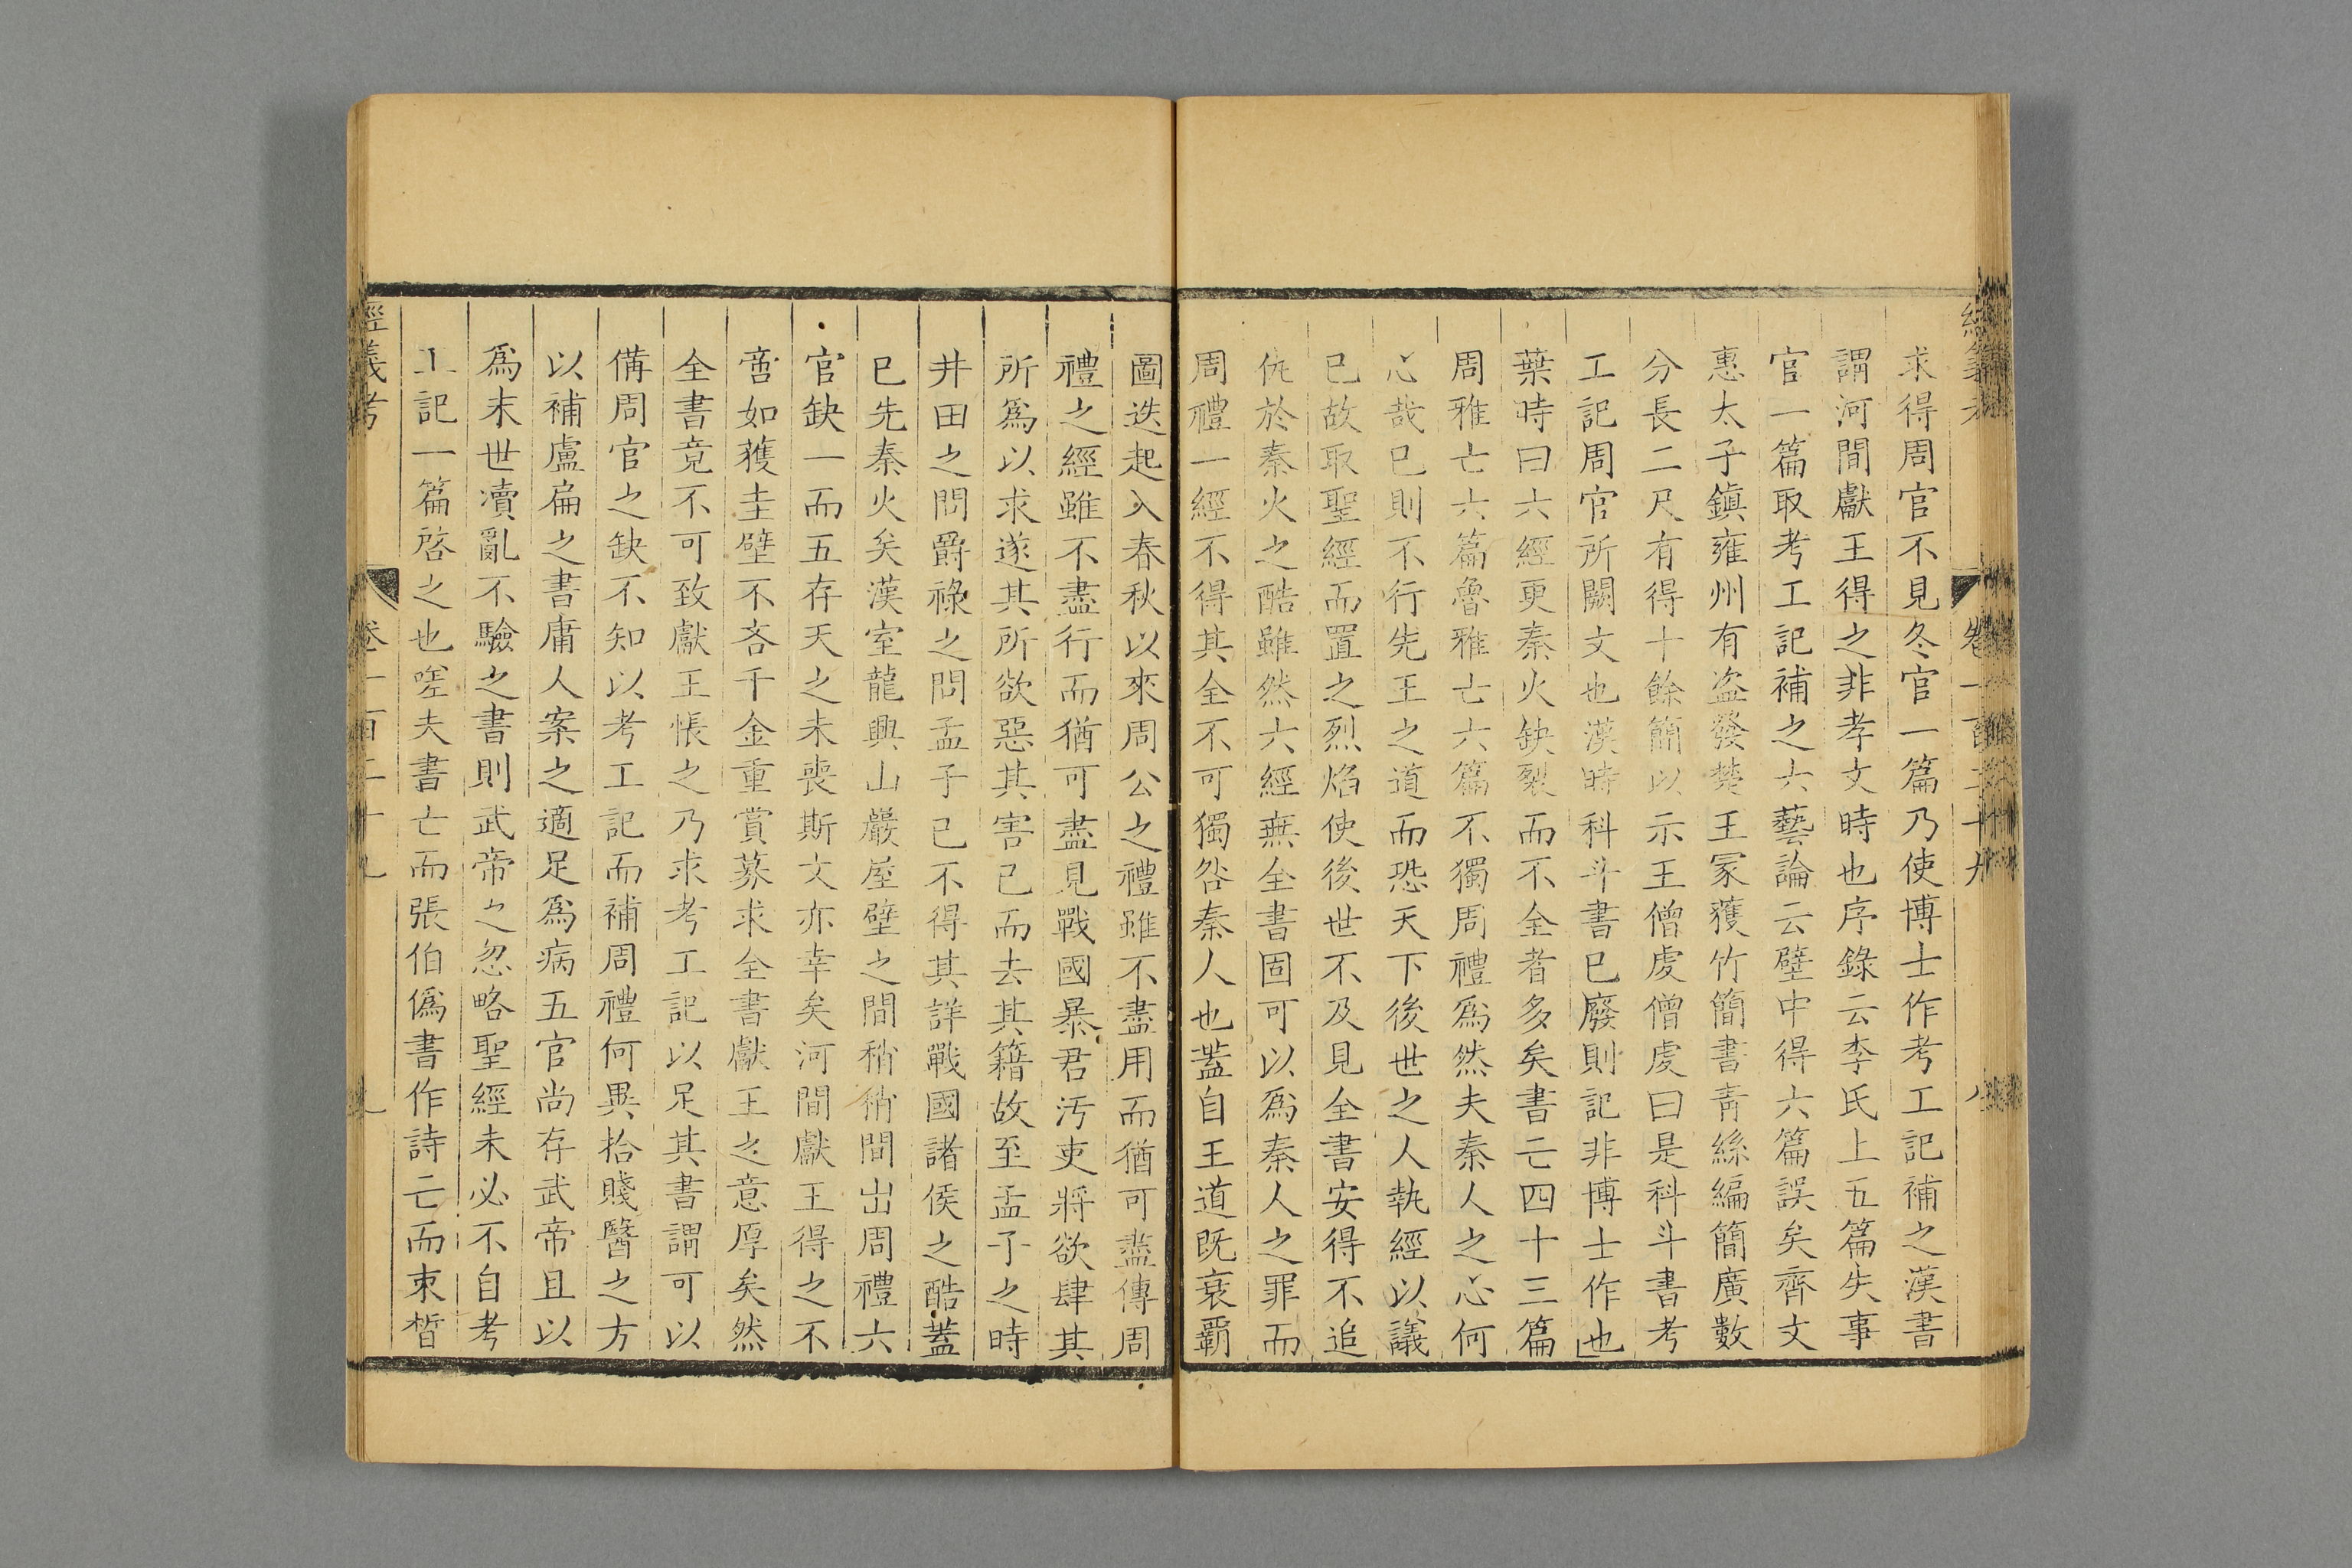 求得周官不見冬官一篇乃使博士作考工記補之漢書
謂河間獻王得之非孝文時也序錄云李氏上五篇失事
官一篇取考工記補之六藝論云壁中得六篇誤矣齊文
惠太子鎮雍州有盜發楚王冢獲竹簡書青絲編簡廣數
分長二尺有得十餘簡以示王僧虔僧虔曰是科斗書考
工記周官所闕文也漢時科斗書已廢則記非博士作也
葉時曰六經更秦火缺裂而不全者多矣書亡四十三篇
周雅亡六篇魯雅亡六篇不獨周禮爲然夫秦人之心何
心哉已則不行先王之道而恐天下後世之人執經以議
已故取聖經而置之烈焰使後世不及見全書安得不追
仇於秦火之酷雖然六經無全書固可以爲秦人之罪而
周禮一經不得其全不可獨咎秦人也蓋自王道既衰霸
圖迭起入春秋以來周公之禮雖不盡用而猶可盡傳周
禮之經雖不盡行而猶可盡見戰國暴君汚吏將欲肆其
所爲以求遂其所欲惡其害已而去其籍故至孟子之時
井田之問爵祿之問孟子已不得其詳戰國諸侯之酷蓋
已先秦火矣漢室龍興山巖屋壁之間稍稍間出周禮六
官缺一而五存天之未喪斯文亦幸矣河間獻王得之不
啻如獲圭璧不吝千金重賞募求全書獻王之意厚矣然
全書竟不可致獻王悵之乃求考工記以足其書謂可以
備周官之缺不知以考工記而補周禮何異拾賤醫之方
以補盧扁之書庸人案之適足爲病五官尚存武帝且以
爲末世瀆亂不驗之書則武帝之忽略聖經未必不自考
工記一篇啓之也嗟夫書亡而張伯僞書作詩亡而束晳
經義考
卷一百二十九